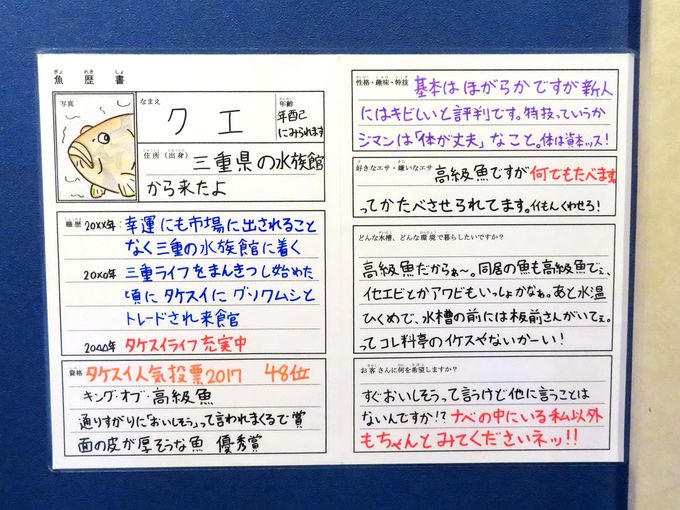 魚歴書
写真
なまえ
クエ
年齢
年酉己
にみられます
住所(出身)
三重県の水族館
から来たよ
職歴
20XX年:幸運にも市場に出されること
なく三重の水族館に着く
20X0年 三重ライフをまんきつし始めた
頃にタケスイにグソクムシと
トレードされ来館
20△△年 タケスイライフ充実中
資格
タケスイ人気投票2017 48位
キング・オブ・高級魚
通りすがりに「おいしそう」って言われまくるで賞
面の皮が厚そうな魚 優秀賞
性格・趣味・特技
基本はほがらかですが新人
にはキビしいと評判です。特技っていうか
ジマンは「体が丈夫」なこと。体は資本ッス!
好きなエサ・嫌いなエサ
高級魚ですが何でもたべます
ってかたべさせられてます。イイもんくわせろ!
どんな水槽、どんな環境で暮らしたいですか?
高級魚だからぁ〜。同居の魚も高級魚でぇ、
イセエビとかアワビもいっしょかなぁ。あと水温
ひくめで、水槽の前には板前さんがいてぇ。
ってコレ料亭のイケスやないかーい!
お客さんに何を希望しますか?
すぐおいしそうって言うけど他に言うことは
ないんですか!?ナベの中にいる私以外
もちゃんとみてくださいネッ!!